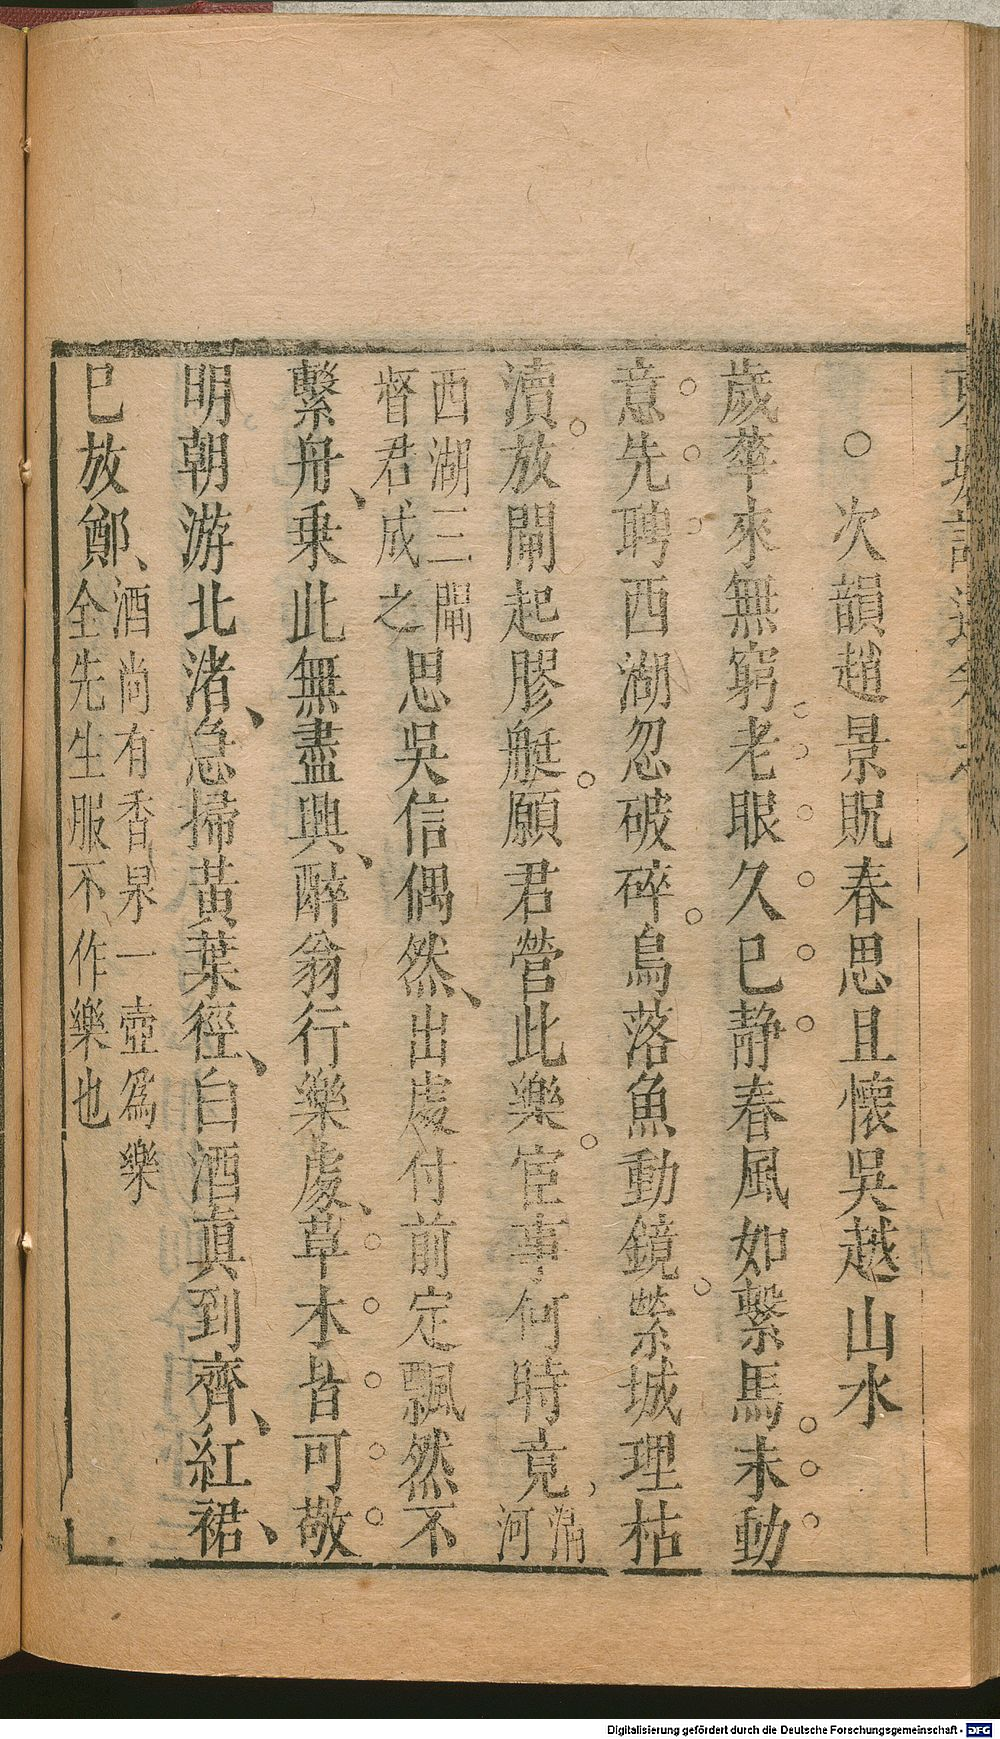 ○次韻趙景貺春思且懷吳越山水
歲華來無窮。老眼久已静。春風如繫馬未動
意先聘。西湖忽破碎。烏落魚動鏡。縈城理枯
瀆。放閘起膠艇。願君營此樂。宦事何時竟、清河
西湖三閘
督君成之
思吳信偶然、出處付前定飄然不
繫舟、乘此無盡興、醉翁行樂處、草木皆可敬
明朝游北渚、急掃黃葉徑、白酒眞到齊、紅裙、
已放鄭、
酒尚有香泉一壺爲樂
全先生服不作樂也
Digitalisierung gefördert durch die Deutsche Forschungsgemeinschaft - DFG